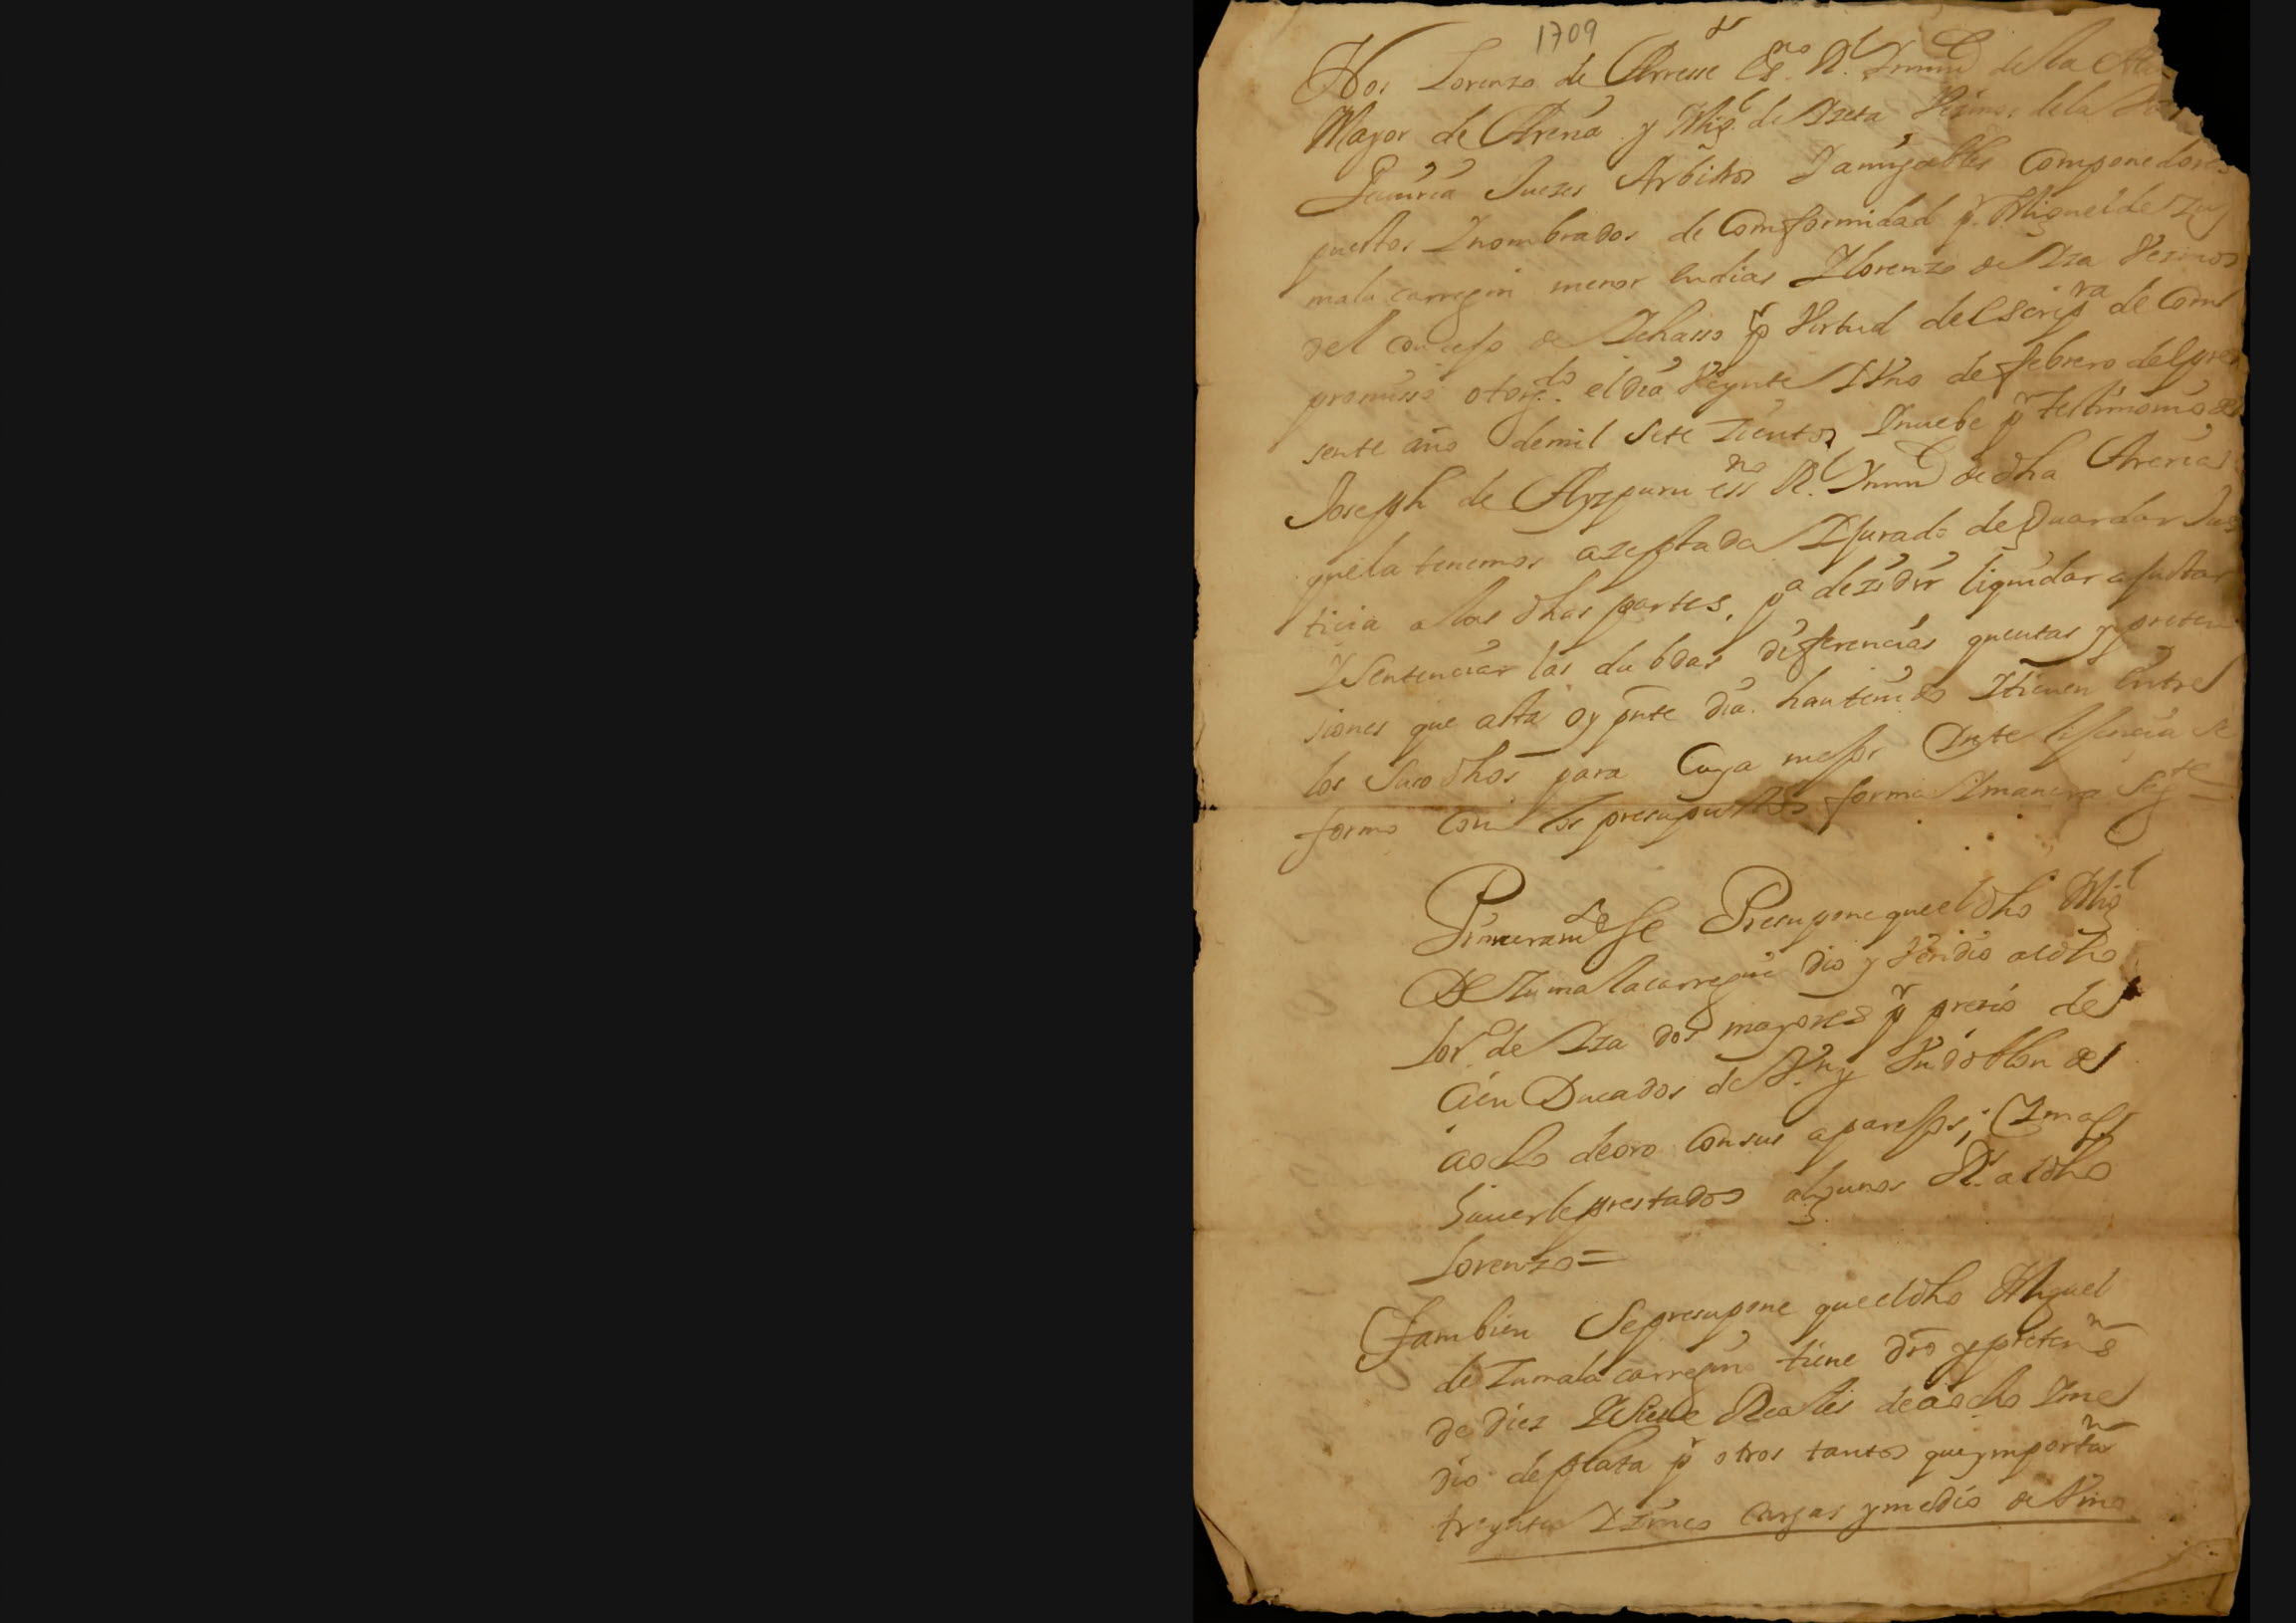 1709
Nos Lorenzo de Arresse Essno Rl Y num de la
Mayor de Areria y Migl de Yzeta Vezinos de la
Juezes Arbitros Y amigables Componedores
puestos Y nombrados de Comformidad pr Miguel de Zu
mala carregui menor en dias Y lorenzo de Yza Vezinos
del concejo de Ychasso pr Virtud de Escripra de Com
promisso otorgdo el dia Veynte Y Vno de febrero del pre
sente año de mil Sete Zientos Y nuebe pr testimonio de
Joseph de Ayzpuru essno Rl Y num de dha Areria
que la tenemos azeptada Y Jurado de Guardar Jus
ticia a las dhas partes, pa dezidir liquidar ajustar
Y Sentenciar las dubdas diferencias quentas y preten
siones que asta oy pnte dia han tenido Y tienen Entre
los Suso dhos para Cuya mejor Ynteligencia se
forma con los presupuestos forma Y manera Sigte =
Primeramte Se Presupone que el dho Migl
De Zumalacarregui dio y Vendio al dho
Lor de Yza dos mayores pr prezio de
Cien Ducados de Vn y Vn doblon de
a ocho de oro Con sus aparejos; Y mas
hauerle prestados algunos Rs al dho
Lorenzo =
Tambien Se presupone que el dho Miguel
de Zumalacarregui tiene dro y pretenns
de diez Y Siete Reales de a ocho Y me
dio de plata pr otros tantos que ymportan
treynta Y Zinco Cargas y medio de Vino